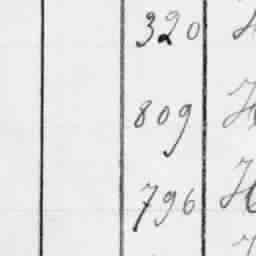 320
809
796